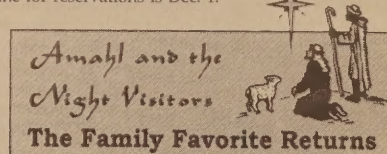 for reservations is Dec. 1.
Amahl and the
Night Visitors
The Family Favorite Returns